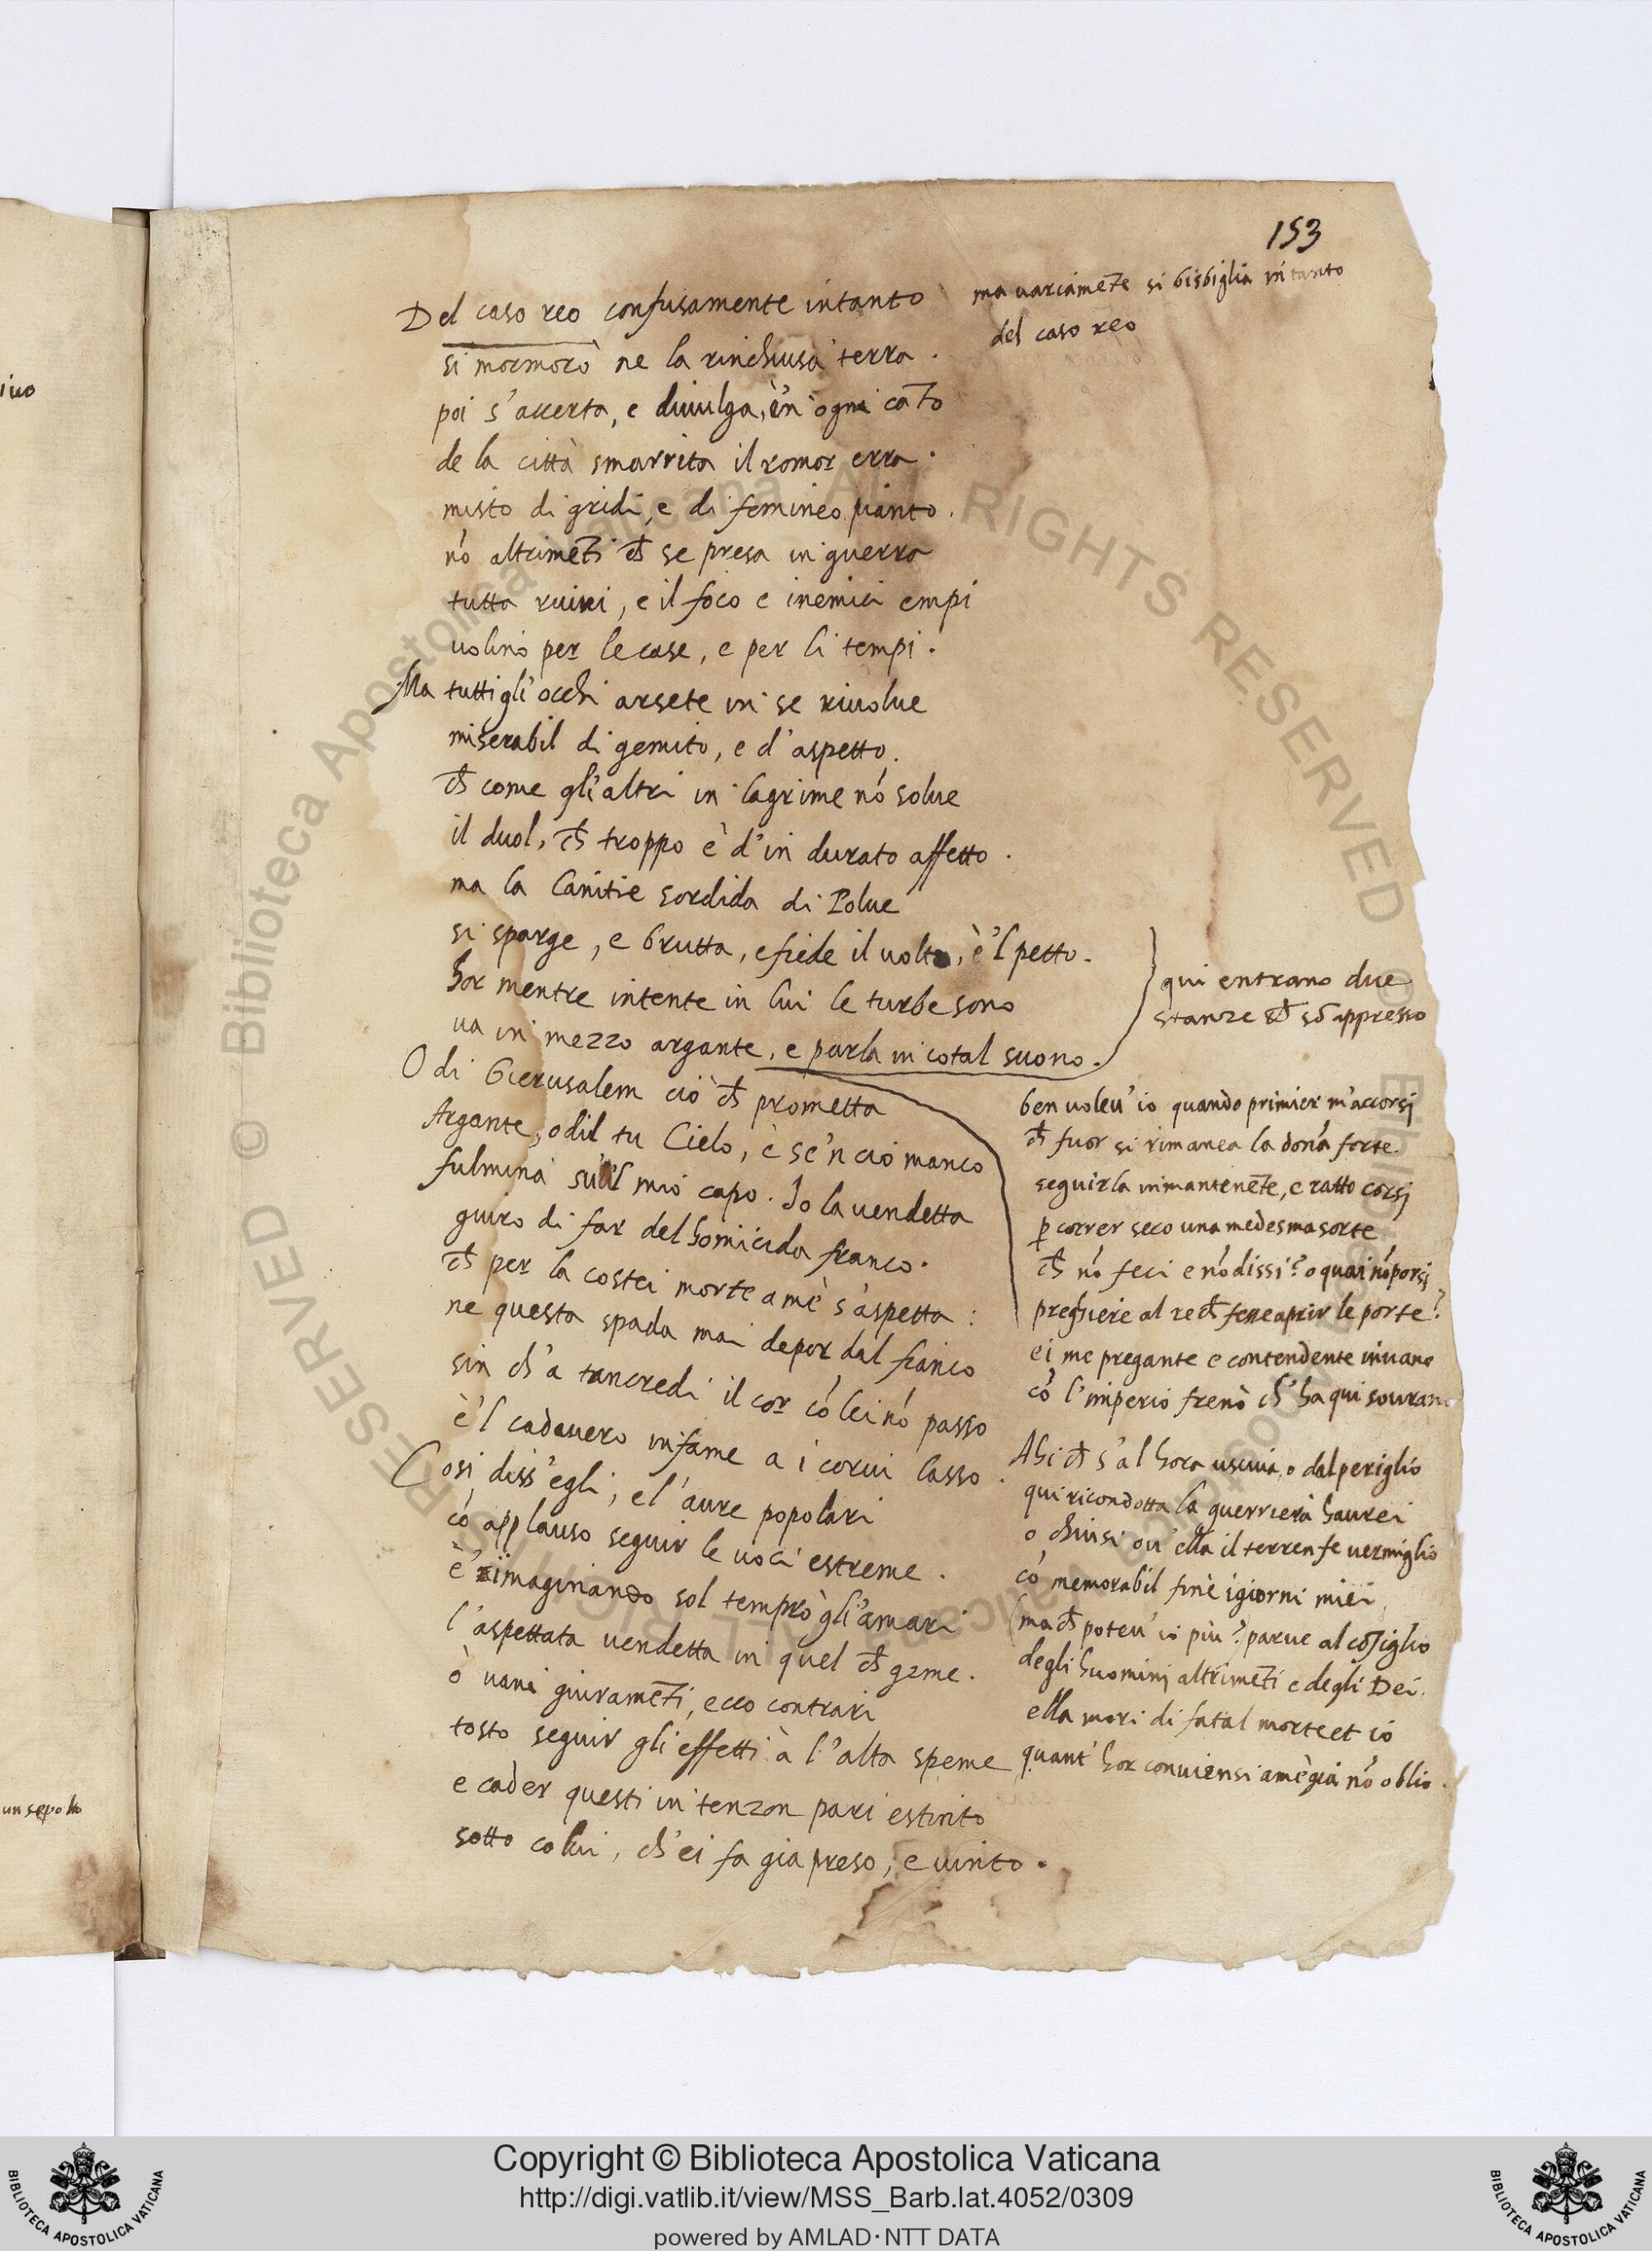 153
Del caso reo confusamente intanto
si mormorò ne la rinchiusa terra.
poi s'accerta, e divulga, è'n ogni cāto
de la città smarrita il romor erra.
misto di gridi, e di femineo pianto.
nō altrimēti ch̄ se presa in guerra
tutta ruini, e il foco e inemici empi
volino per le case, e per li tempi.
Ma tutti gli occhi arsete in se rivolve
miserabil di gemito, e d'aspetto.
ch̄ come gli altri in lagrime nō solve
il duol, ch̄ troppo è d'indurato affetto.
ma la Canitie sordida di Polve
si sparge, e brutta, e fiede il volto, è'l petto.
hor mentre intente in lui le turbe sono
va in mezzo argante, e parla in cotal suono.
O di Gierusalem ciò ch̄ prometta
Argante, odil tu Cielo, è se'n ciò manco
fulmina sul mio capo. Io la vendetta
giuro di far del homicida franco.
ch̄ per la costei morte a mè s'aspetta:
ne questa spada mai depor dal fianco
sin ch'a tancredi il cor cō lei nō passo
è'l cadavero infame a i corvi lasso.
Cosi diss'egli, e l'aure popolari
cō applauso seguir le voci estreme.
è imaginando sol temprò gli amari
l'aspettata vendetta in quel ch̄ geme.
ò vani giuramēti, ecco contrari
tosto seguir gli effetti à l'alta speme
e cader questi in tenzon pari estinto
sotto colui, ch'ei fa gia preso, e vinto.
ma variamēte si bisbiglia intanto
del caso reo
qui entrano due
stanze ch̄ sō appresso
ben volev'io quando primier m'accorsi
ch̄ fuor si rimanea la donna forte
seguirla inmantenēte, e ratto corsi
p̱ correr seco una medesma sorte
ch̄ nō feci e nō dissi? o quai nō porsi
preghiere al re ch̄ fesse aprir le porte?
ei me pregante e contendente invano
cō l'imperio frenò ch'ha qui sovrano
Ahi ch̄ s'al hora usciva, o dal periglio
qui ricondotta la guerriera haurei
o chiusi ov'ella il terren fe vermiglio
cō memorabil fine i giorni miei
(ma ch̄ potev'io più? parve al cōsiglio
degli huomini altrimēti e degli Dei.
ella mori di fatal morte et io
quant'hor conviensi a mè già nō oblio.
ivo
un sepolto
© Biblioteca Apostolica Vaticana ALL RIGHTS RESERVED
© Biblioteca Apostolica Vaticana ALL RIGHTS RESERVED
Copyright © Biblioteca Apostolica Vaticana
http://digi.vatlib.it/view/MSS_Barb.lat.4052/0309
powered by AMLAD·NTT DATA
BIBLIOTECA APOSTOLICA VATICANA
BIBLIOTECA APOSTOLICA VATICANA